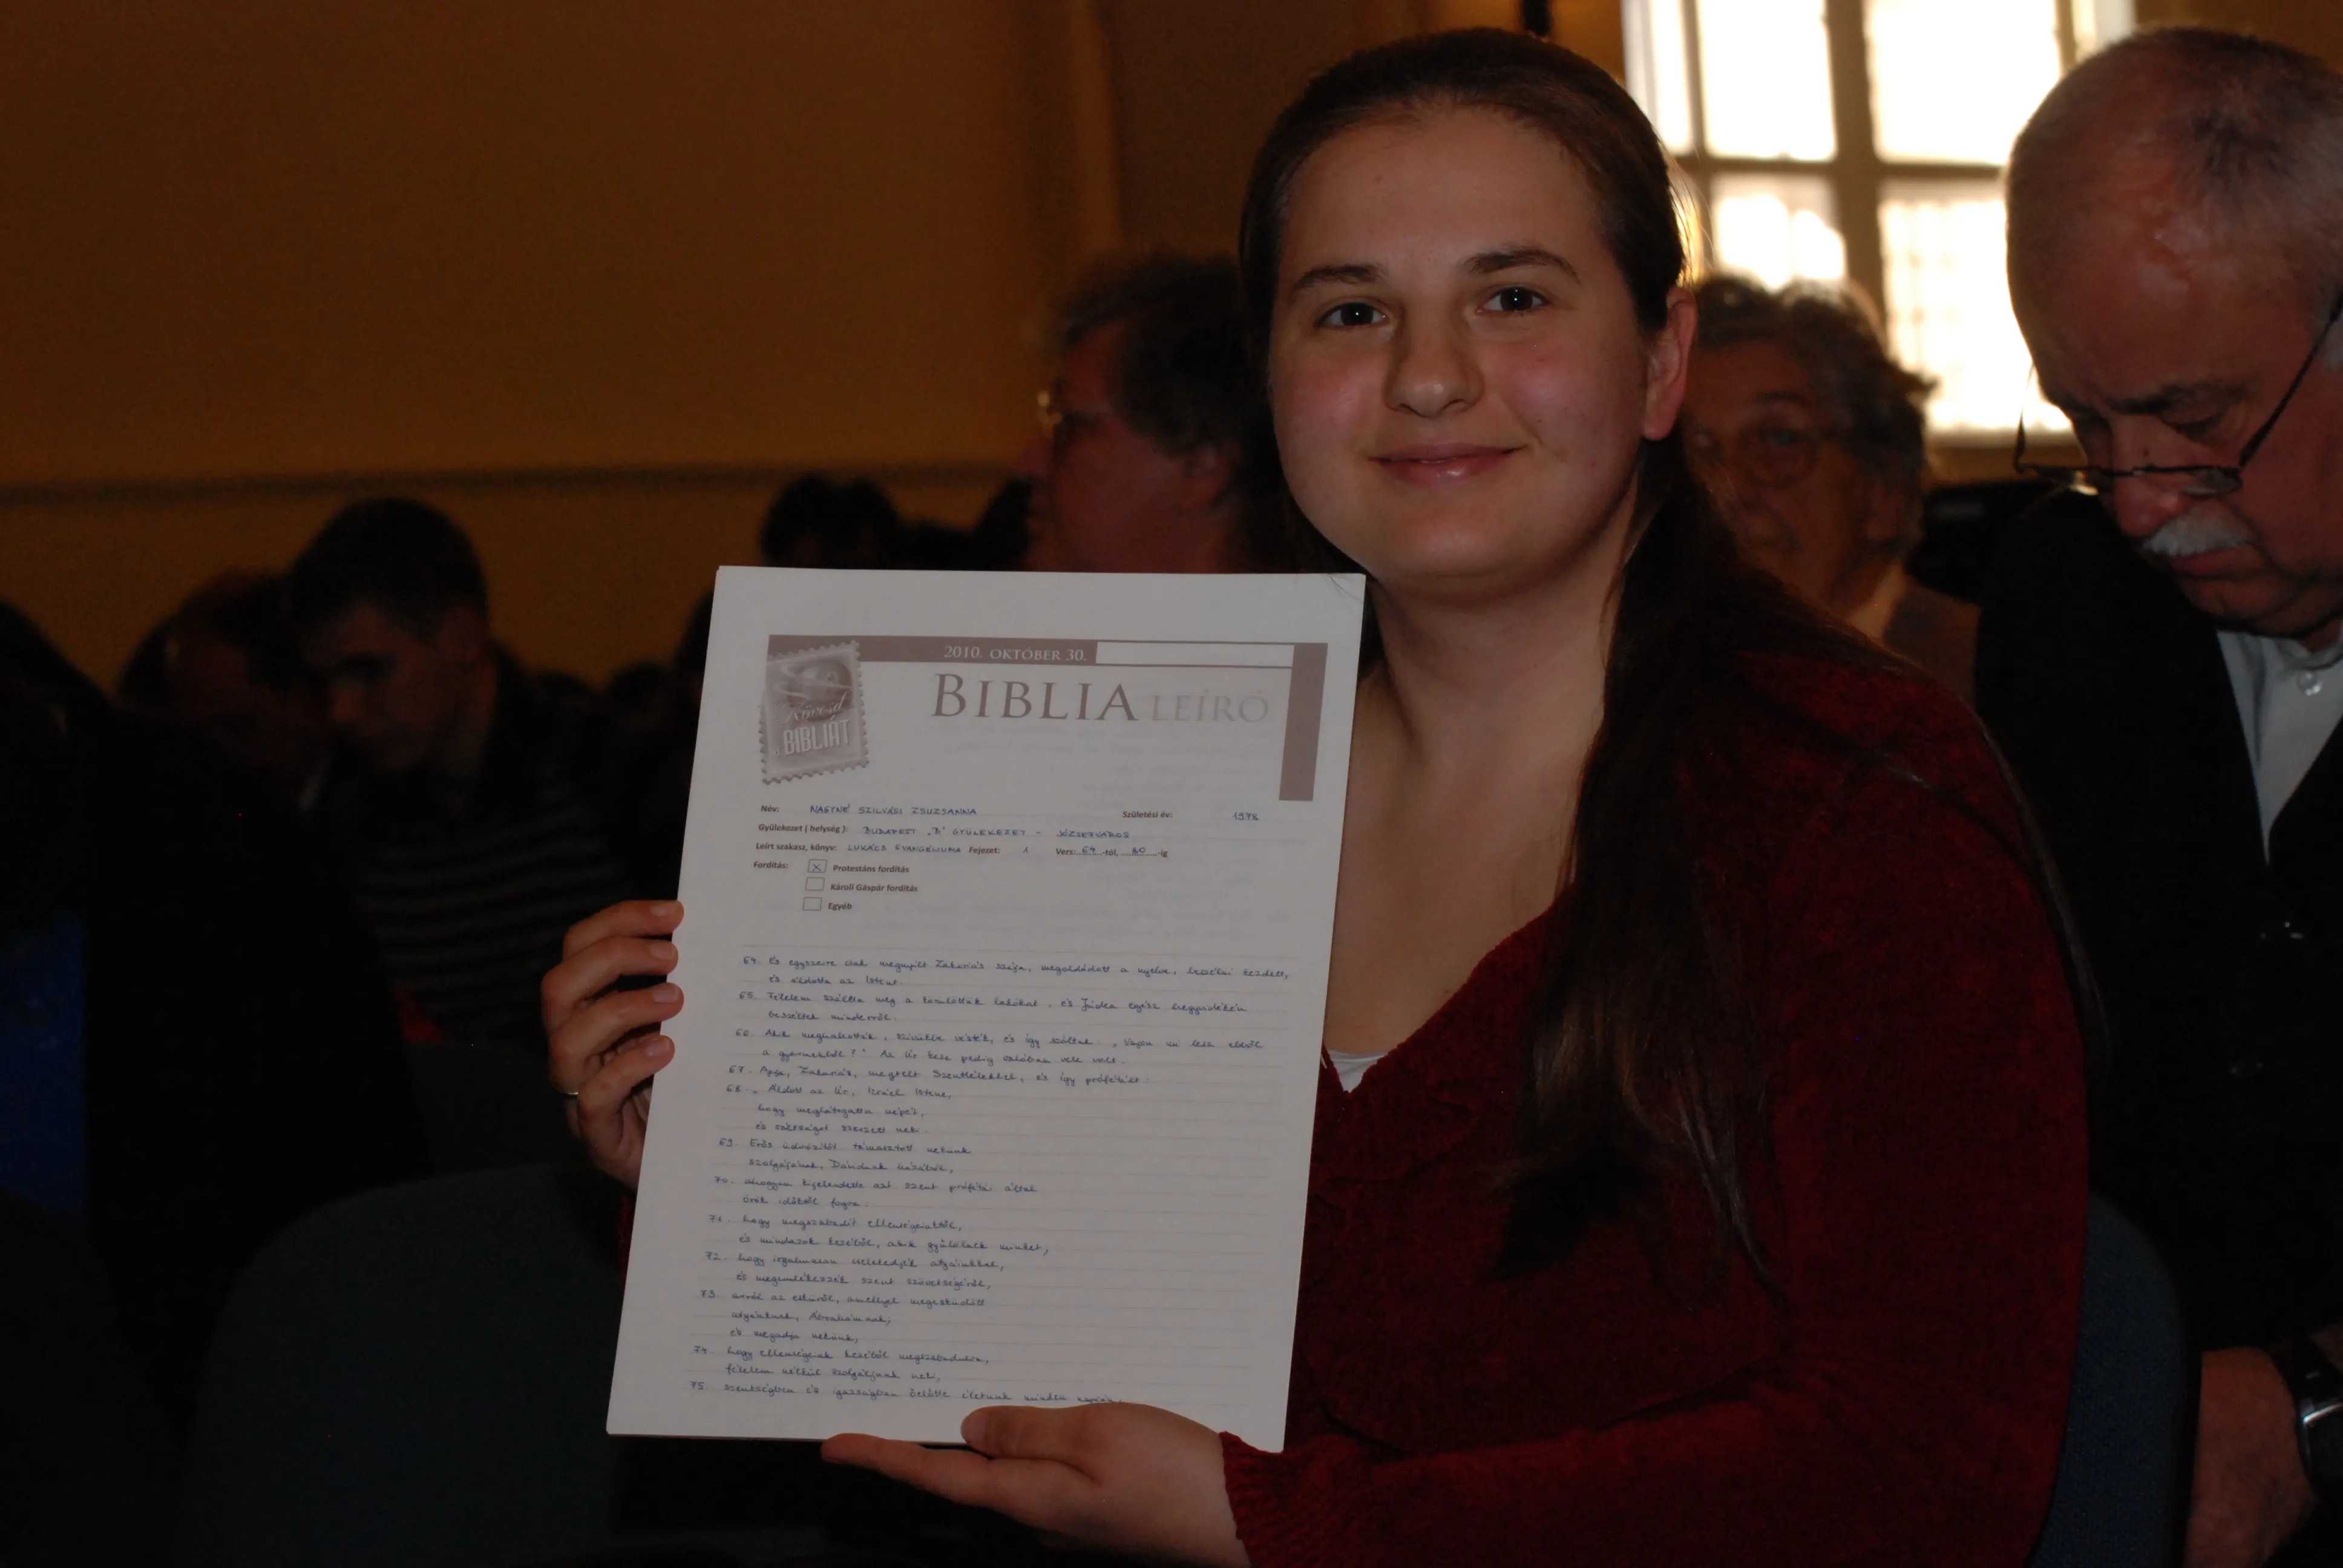 2010. OKTÓBER 30.
BIBLIA LEÍRÓ
Kövesd
a BIBLIÁT
Név: NAGYNÉ SZILVÁSI ZSUZSANNA Születési év: 1978
Gyülekezet ( helység ): BUDAPEST "B" GYÜLEKEZET - JÓZSEFVÁROS
Leírt szakasz, könyv: LUKÁCS EVANGÉLIUMA Fejezet: 1 Vers: 64 -től, 80 -ig
Fordítás: x Protestáns fordítás
Károli Gáspár fordítás
Egyéb
64. És egyszerre csak megnyílt Zakariás szája, megoldódott a nyelve, beszélni kezdett,
és áldotta az Istent.
65. Félelem szállta meg a körülöttük lakókat, és Júdea egész hegyvidékén
beszéltek minderről.
66. Akik meghallották, szívükbe vésték, és így szóltak: „Vajon mi lesz ebből
a gyermekből?" Az Úr keze pedig valóban vele volt.
67. Apja, Zakariás, megtelt Szentlélekkel, és így prófétált:
68. „Áldott az Úr, Izráel Istene,
hogy meglátogatta népét,
és váltságot szerzett neki.
69. Erős üdvözítőt támasztott nekünk
szolgájának, Dávidnak házából,
70. ahogyan kijelentette azt szent prófétái által
örök időktől fogva:
71. hogy megszabadít ellenségeinktől,
és mindazok kezéből, akik gyűlölnek minket,
72. hogy irgalmasan cselekedjék atyáinkkal,
és megemlékezzék szent szövetségéről,
73. arról az esküről, amellyel megesküdött
atyánknak, Ábrahámnak;
és megadja nekünk,
74. hogy ellenségeink kezéből megszabadulva,
félelem nélkül szolgáljunk neki,
75. szentségben és igazságban őelőtte életünk minden napján.